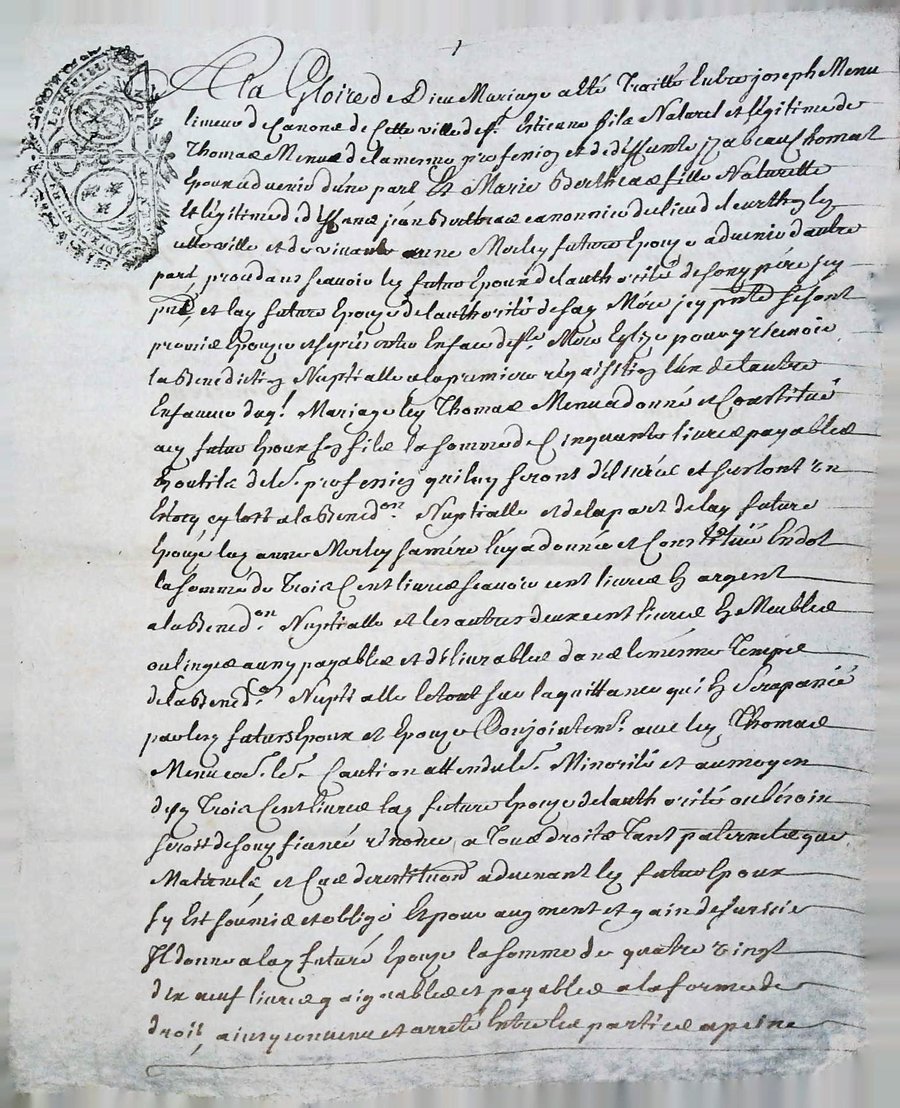 A la Gloire de Dieu Mariage a esté Traitté Entre joseph Menu
limeur de Canons de Cette ville de St. Estienne fils Naturel et légitime de
Thomas Menu de la mesme profession et de deffunte jzabeau Thomas
Epoux advenir d'une part Et Marie Bertheas fille Naturelle
et légitime de deffunct jean Bertheas canonnier du lieu de
ville et de vivante anne Morley future Epouze advenir d'autre
part, procedans scavoir ley futur Epoux de l'authorité de son père jcy
pnt, et lay future Epouze de l'authorité de say Mere jcy pnte se sont
promis Epouzer et En face de Ste. Mere Eglize pour y recevoir
la Benediction Nuptialle a la premiere requisition l'un de l'autre
En faveur duqt. Mariage ley Thomas Menu a donné et Constitué
aux futur Epoux sey fils la somme de Cinquante livres payables
En outils de le. profession qui luy seront délivrés et seront un
Estocq lors a la Bened.on Nuptialle et de la part de lay future
Epouze lay anne Morley sa mére luy a donnée et Constitué En dot
la somme de Trois Cent livres scavoir cent livres En argent
a la Bened.on Nuptialle et les autres deux cent livres En Meubles
ou linges payables et délivrables dans le mesme Temps
de la Bened.on Nuptialle le tout sur la quittance qui En sera passée
par ley futurs Epoux et Epouze Conjointemt. avec ley Thomas
Menu Caution attendu le. Minorité et au moyen
desy Trois Cent livres lay future Epouze de l'authorité au bésoin
seroit de son fiancé rénonce a Tous droits Tant paternels que
Maternels et Cas de restituon advenant ley futur Epoux
sy Est soumis et obligé Et pour augment et gain de survie
Il donne a lay future Epouze la somme de quatre vingt
dix neuf livres gaignables et payables a la forme de
droit, ainsy convenu et arreté Entre les parties a peine